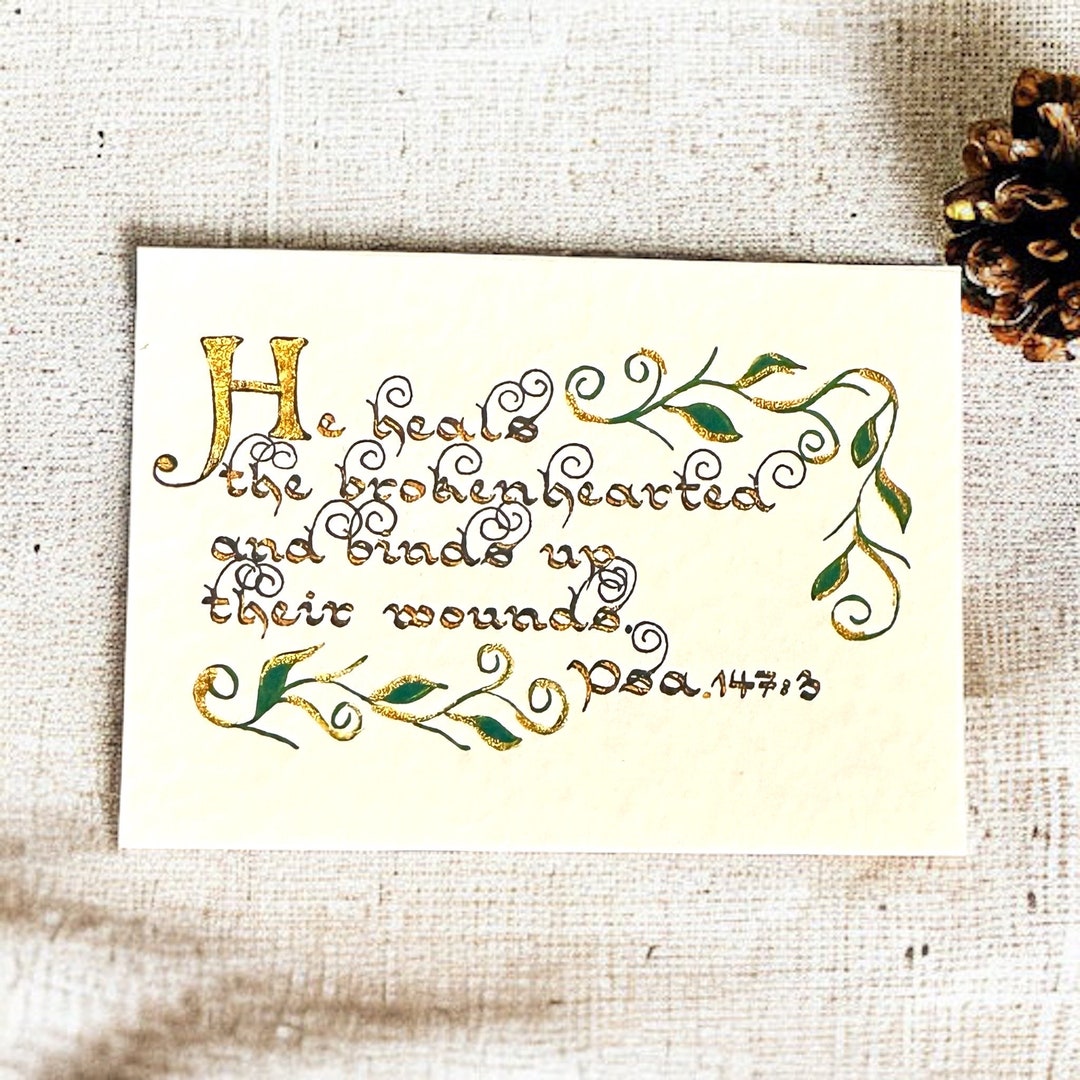 He heals
the brokenhearted
and binds up
their wounds.
Psa.147:3